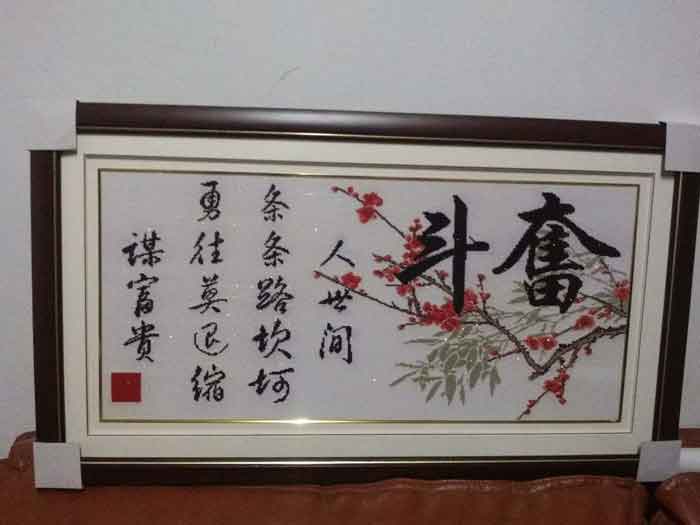 奋斗
人世间
条条路坎坷
勇往莫退缩
谋富贵